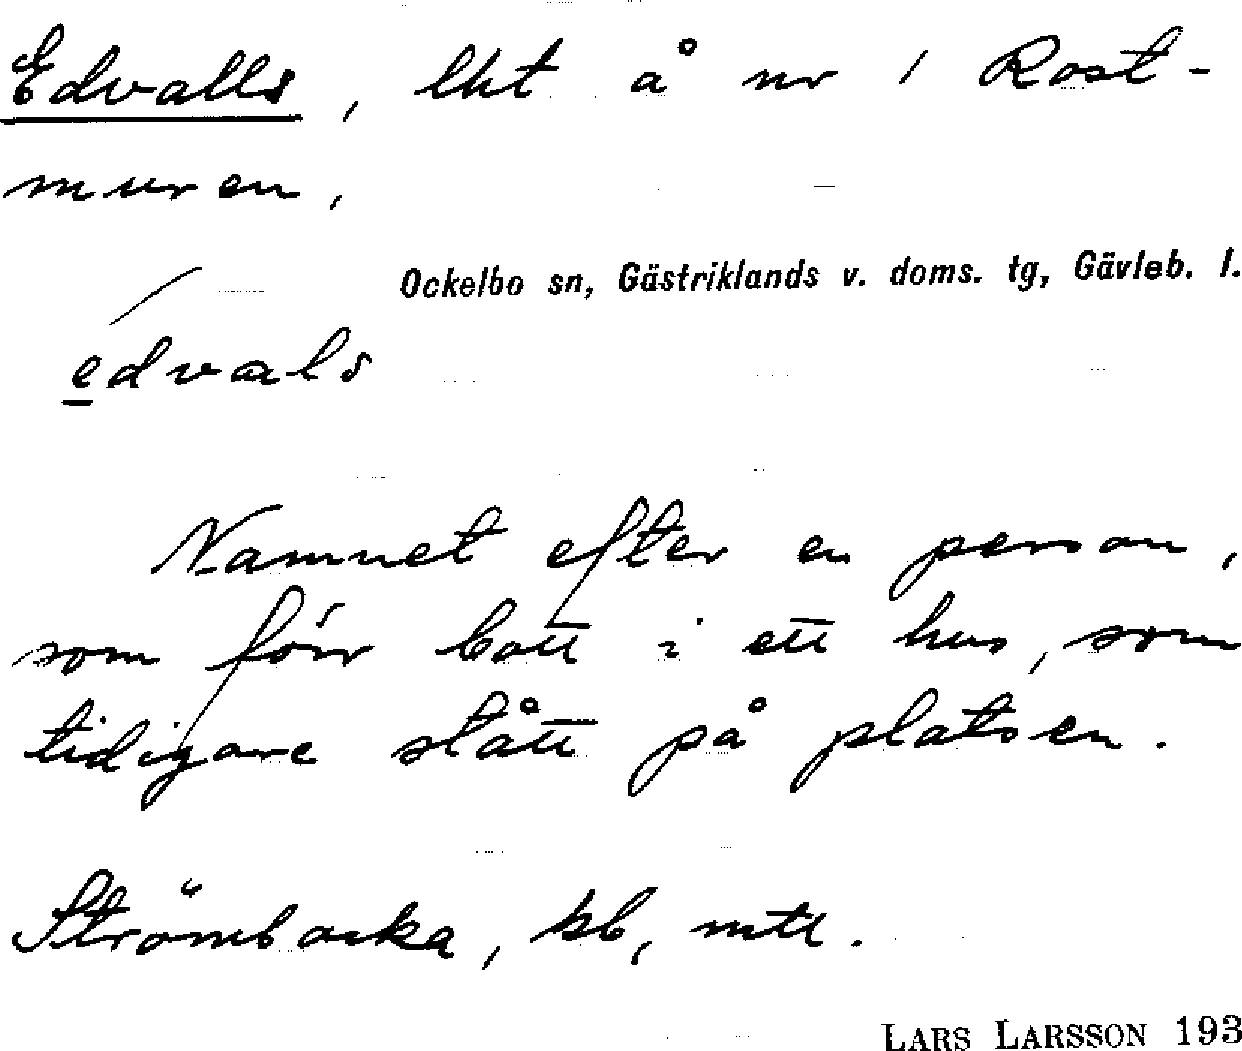 Edvalls, lht å nr 1 Rost-
muren,
Ockelbo sn, Gästriklands v. doms. tg, Gävleb. l.
edvals
Namnet efter en person,
som förr bott i ett hus, som
tidigare stått på platsen.
Strömbacka, kb, mtl.
LARS LARSSON 193